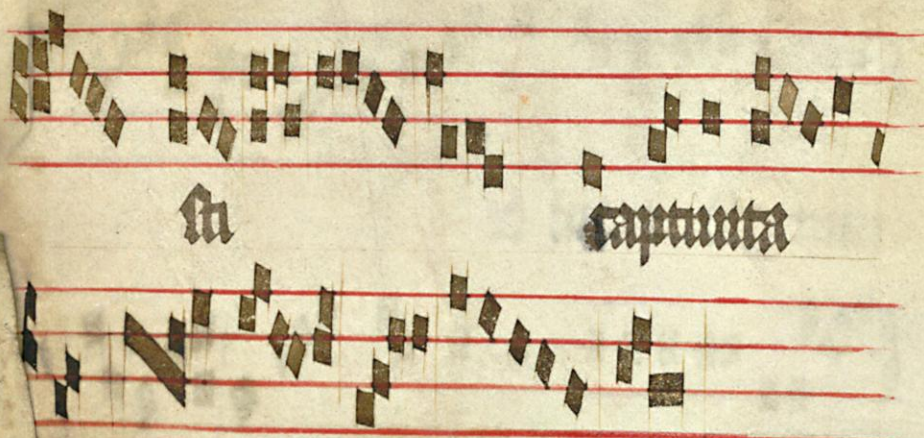 sti captiuita